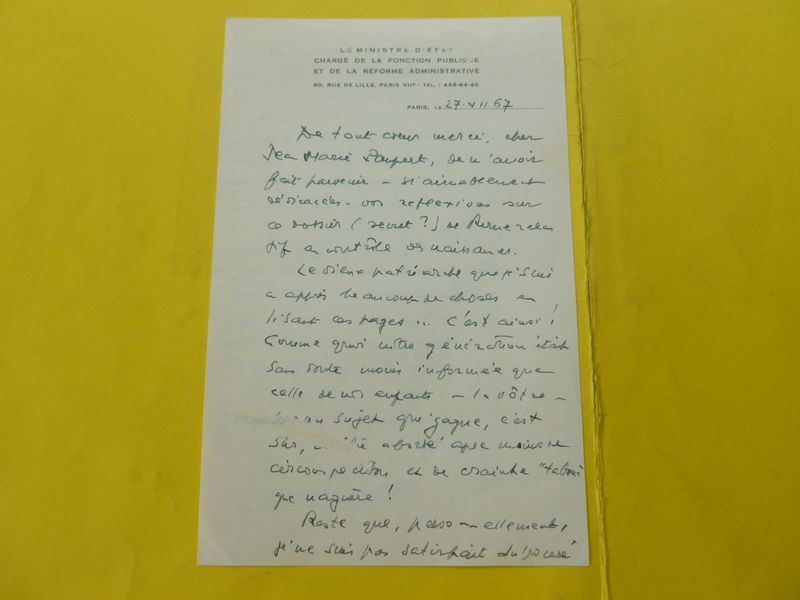 LE MINISTRE D'ÉTAT
CHARGÉ DE LA FONCTION PUBLIQUE
ET DE LA RÉFORME ADMINISTRATIVE
60, RUE DE LILLE, PARIS VIIe - TÉL. : 468-84-40
PARIS, LE 27.VII.67
De tout cœur merci, cher
Jean Marie Paupert, de m'avoir
fait parvenir - si aimablement
dédicacées - vos reflexions sur
ce dossier (secret ?) de Rome rela
tif au contrôle des naissances.
Le vieux patriarche que je suis
a appris beaucoup de choses en
lisant ces pages ... C'est ainsi !
Comme quoi notre génération était
sans doute moins informée que
celle de nos enfants - la vôtre -
sujet qui gagne, c'est
sûr, à être abordé avec moins de
circonspection et de crainte "tabou"
que naguère !
Reste que, personnellement,
je ne suis pas satisfait du